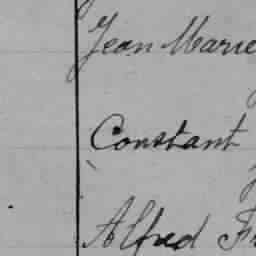 Jean Marie
Constant
Alfred